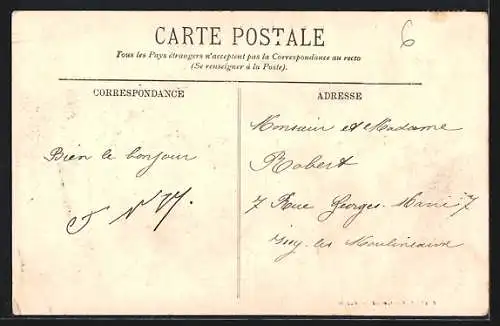 CARTE POSTALE
6
Tous les Pays étrangers n'acceptent pas la Correspondance au recto
(Se renseigner à la Poste).
CORRESPONDANCE
ADRESSE
Bien le bonjour
Monsieur et Madame
Robert
7 Rue Georges-Marie 7
Issy-les Moulineaux